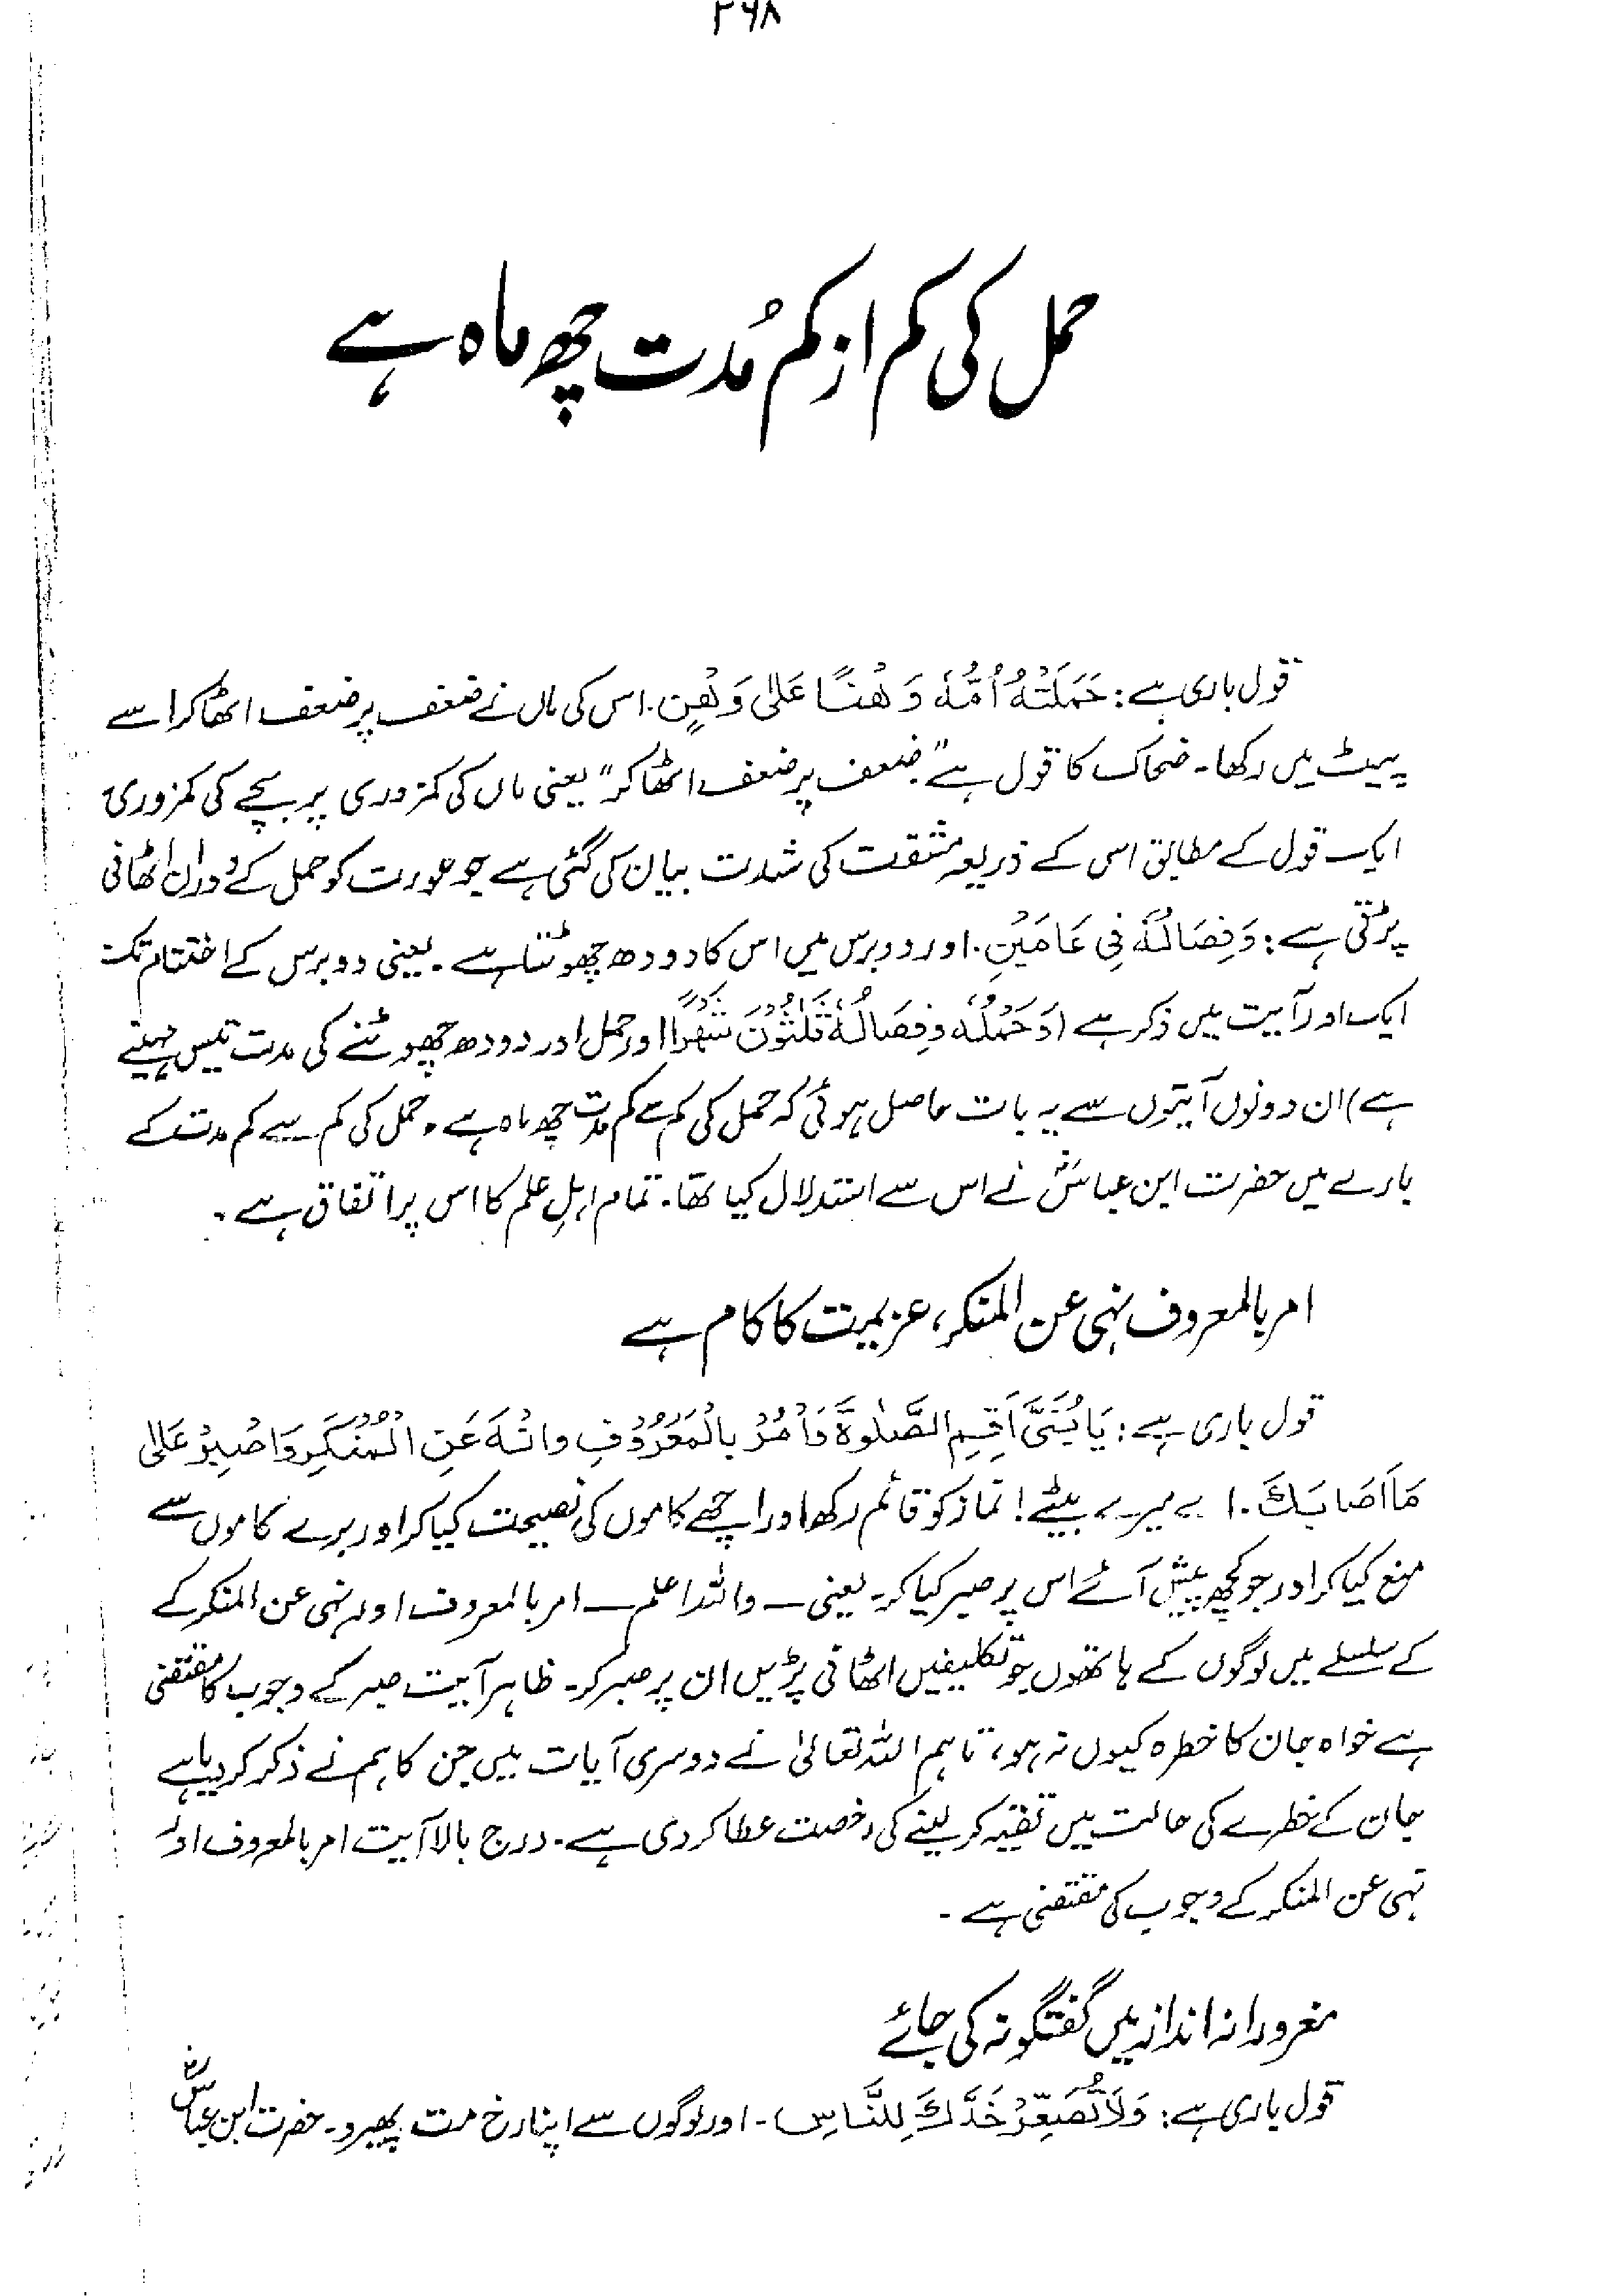 ۲۶۸
حمل کی کم از کم مُدت چھ ماہ ہے
قول باری ہے: حَمَلَتْهُ اُمُّهٗ وَهْنًا عَلٰی وَهْنٍ. اس کی ماں نے ضعف پر ضعف اٹھا کر اسے
پیٹ میں رکھا۔ ضحاک کا قول ہے "ضعف پر ضعف اٹھا کر" یعنی ماں کی کمزوری پر بچے کی کمزوری۔
ایک قول کے مطابق اس کے ذریعہ مشقت کی شدت بیان کی گئی ہے جو عورت کو حمل کے دوران اٹھانی
پڑتی ہے: وَفِصَالُهٗ فِی عَامَیْنِ. اور دو برس میں اس کا دودھ چھوٹتا ہے۔ یعنی دو برس کے اختتام تک
ایک اور آیت میں ذکر ہے (وَحَمْلُهٗ وَفِصَالُهٗ ثَلٰثُوْنَ شَهْرًا اور حمل اور دودھ چھوٹنے کی مدت تیس مہینے
ہے) ان دونوں آیتوں سے یہ بات حاصل ہوئی کہ حمل کی کم سے کم مدت چھ ماہ ہے۔ حمل کی کم سے کم مدت کے
بارے میں حضرت ابن عباسؓ نے اس سے استدلال کیا تھا۔ تمام اہلِ علم کا اس پر اتفاق ہے۔
امر بالمعروف نہی عن المنکر، عزیمت کا کام ہے
قول باری ہے: یَا بُنَیَّ اَقِمِ الصَّلٰوةَ وَأْمُرْ بِالْمَعْرُوْفِ وانْهَ عَنِ الْمُنْکَرِ وَاصْبِرْ عَلٰی
مَا اَصَابَکَ. اے میرے بیٹے! نماز کو قائم رکھ اور اچھے کاموں کی نصیحت کیا کر اور برے کاموں سے
منع کیا کر اور جو کچھ پیش آئے اس پر صبر کیا کر۔ یعنی — واللہ اعلم — امر بالمعروف اور نہی عن المنکر کے
کے سلسلے میں لوگوں کے ہاتھوں جو تکلیفیں اٹھانی پڑیں ان پر صبر کر۔ ظاہر آیت صبر کے وجوب کا مقتضی
ہے خواہ جان کا خطرہ کیوں نہ ہو، تاہم اللہ تعالیٰ نے دوسری آیات میں جن کا ہم نے ذکر کر دیا ہے
جان کے خطرے کی حالت میں تقیہ کر لینے کی رخصت عطا کر دی ہے۔ درج بالا آیت امر بالمعروف اور
نہی عن المنکر کے وجوب کی مقتضی ہے۔
مغرورانہ انداز میں گفتگو نہ کی جائے
قول باری ہے: وَلَا تُصَعِّرْ خَدَّکَ لِلنَّاسِ)۔ اور لوگوں سے اپنا رخ مت پھیرو۔ حضرت ابن عباسؓ